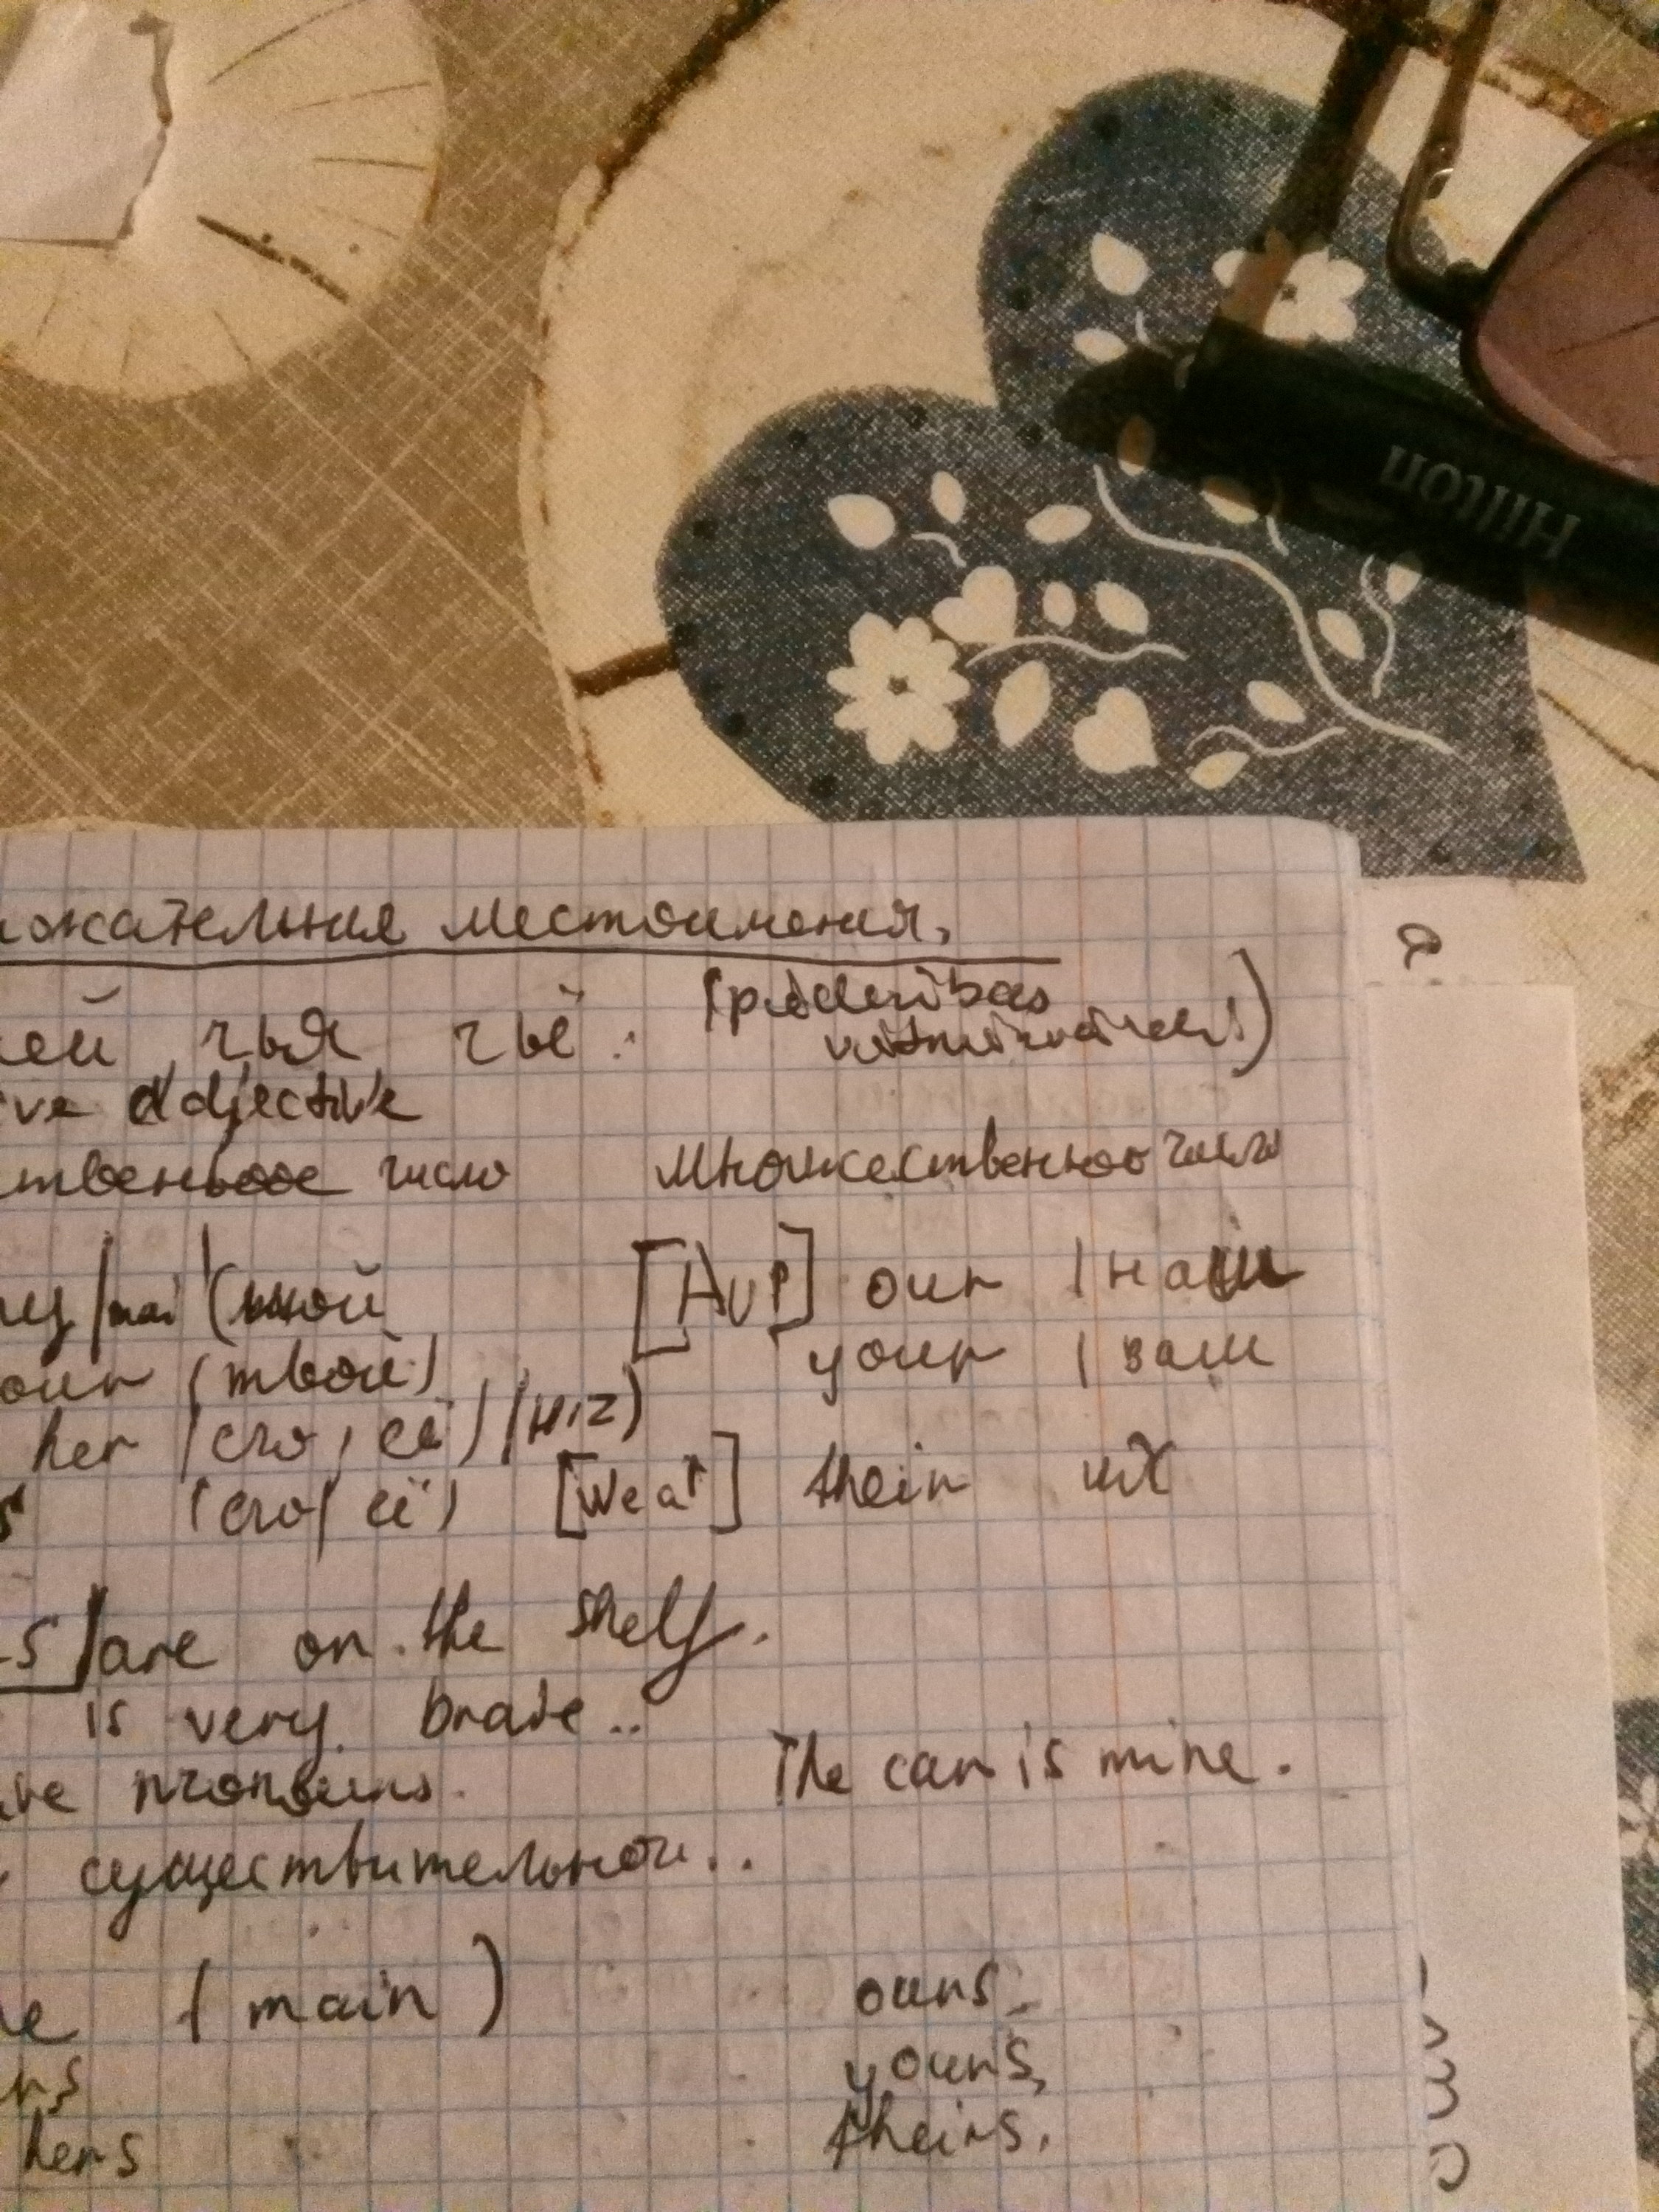 Hilton
ожательные местоимения.
чей, чья чьё. (piederības
vietniekvārdi)
ve adjective
твенное число множественное число
my/mai (мой [Auɐ] our (наш
our (твой) your (ваш
her (его, её) (hiz)
s (его/её) [weaɐ] their их
s are on the shelf.
is very brave..
ve pronouns. The car is mine.
существительного..
ne (main) ours.
rs yours,
hers theirs.